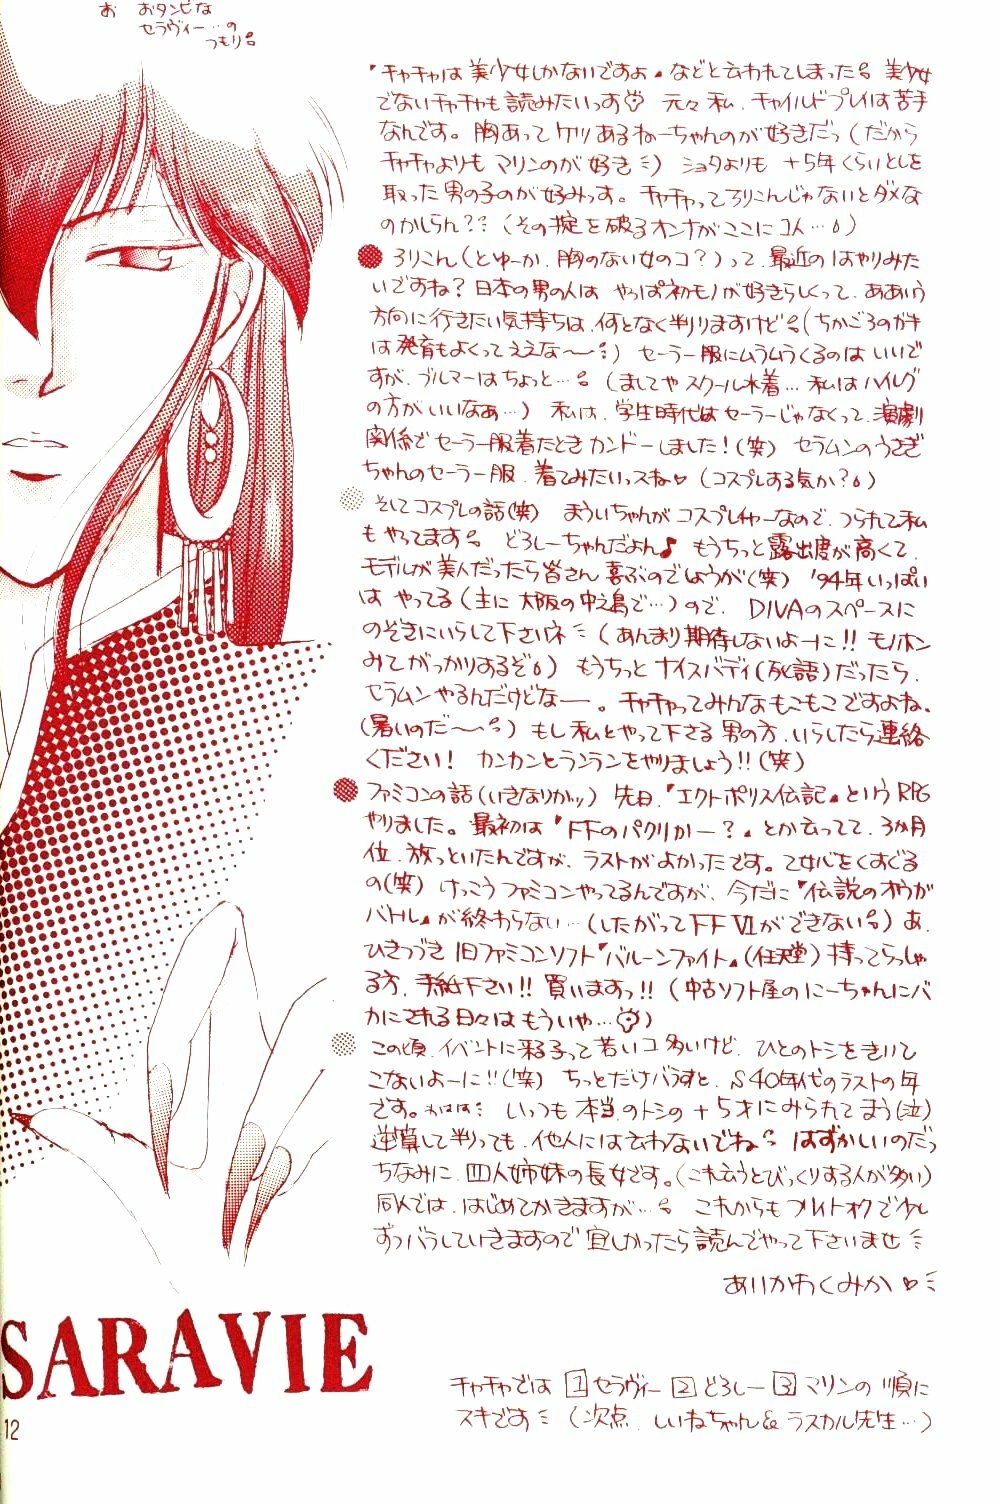 お おタンビな
セラヴィー…の
つもり。
『チャチャは美少女しかないですよ』などと云われてしまった 美少女
でないチャチャも読みたいっす♡ 元々私、チャイルドプレイは苦手
なんです。胸あってケツあるねーちゃんのが好きだっ（だから
チャチャよりもマリンのが好き）ショタよりも +5年くらいとしを
取った男の子のが好みっす。チャチャってろりこんじゃないとダメな
のかしらん??（その掟を破るオンナがここにコ人…）
●ろりこん（とゆーか、胸のない女のコ?）って、最近のはやりみた
いですね? 日本の男の人は やっぱ初モノが好きらしくって、ああいう
方向に行きたい気持ちは、何となく判りますけど（ちかごろのガキ
は発育もよくってええな〜）セーラー服にムラムラくるのはいいで
すが、ブルマーはちょっと…。（ましてやスクール水着…私はハイレグ
の方がいいなぁ…）私は、学生時代はセーラーじゃなくって、演劇
関係でセーラー服着たときカンドーしました!（笑）セラムンのうさぎ
ちゃんのセーラー服、着てみたいっスね♥（コスプレする気か?）
そしてコスプレの話（笑）まういちゃんがコスプレイヤーなので、つられて私
もやってます。どろしーちゃんだよん♪ もうちっと露出度が高くて、
モデルが美人だったら皆さん喜ぶのでしょうが（笑）'94年いっぱい
はやってる（主に大阪の中之島で…）ので、DIVAのスペースに
のぞきにいらして下さいネ（あんまり期待しないよーに!! モノホン
みてがっかりするぞ）もうちっとナイスバディ（死語）だったら、
セラムンやるんだけどなー。チャチャってみんなもこもこですよね、
（暑いのだ〜）もし私とやって下さる男の方、いらしたら連絡
ください! カンカンとランランをやりましょう!!（笑）
●ファミコンの話（いきなりかッ）先日、『エクトポリス伝記』というRPG
やりました。最初は『FFのパクリかー?』とか云ってて、3か月
位、放っといたんですが、ラストがよかったです。乙女心をくすぐる
の（笑）けっこうファミコンやってるんですが、今だに『伝説のオウガ
バトル』が終わらない…（したがってFFⅥができない）あ、
ひきつづき旧ファミコンソフト『バルーンファイト』（任天堂）持ってらっしゃ
る方、手紙下さい!! 買いますっ!!（中古ソフト屋のにーちゃんにバ
カにされる日々はもういや…♡）
この頃、イベントに来る子って若いコ多いけど、ひとのトシをきいて
こないよーに!!（笑）ちっとだけバラすと、S40年代のラストの年
です。わはは いっつも本当のトシの +5才にみられてまう（泣）
逆算して判っても、他人には云わないでね はずかしいのだっ
ちなみに、四人姉妹の長女です。（これ云うとびっくりする人が多い）
同人では、はじめてかきますが…。これからもプレイトオクで少し
ずつバラしていきますので宜しかったら読んでやって下さいませ
ありかわくみか♥
SARAVIE
12
チャチャでは 1 セラヴィー 2 どろしー 3 マリンの順に
スキです（次点、しいねちゃん&ラスカル先生…）